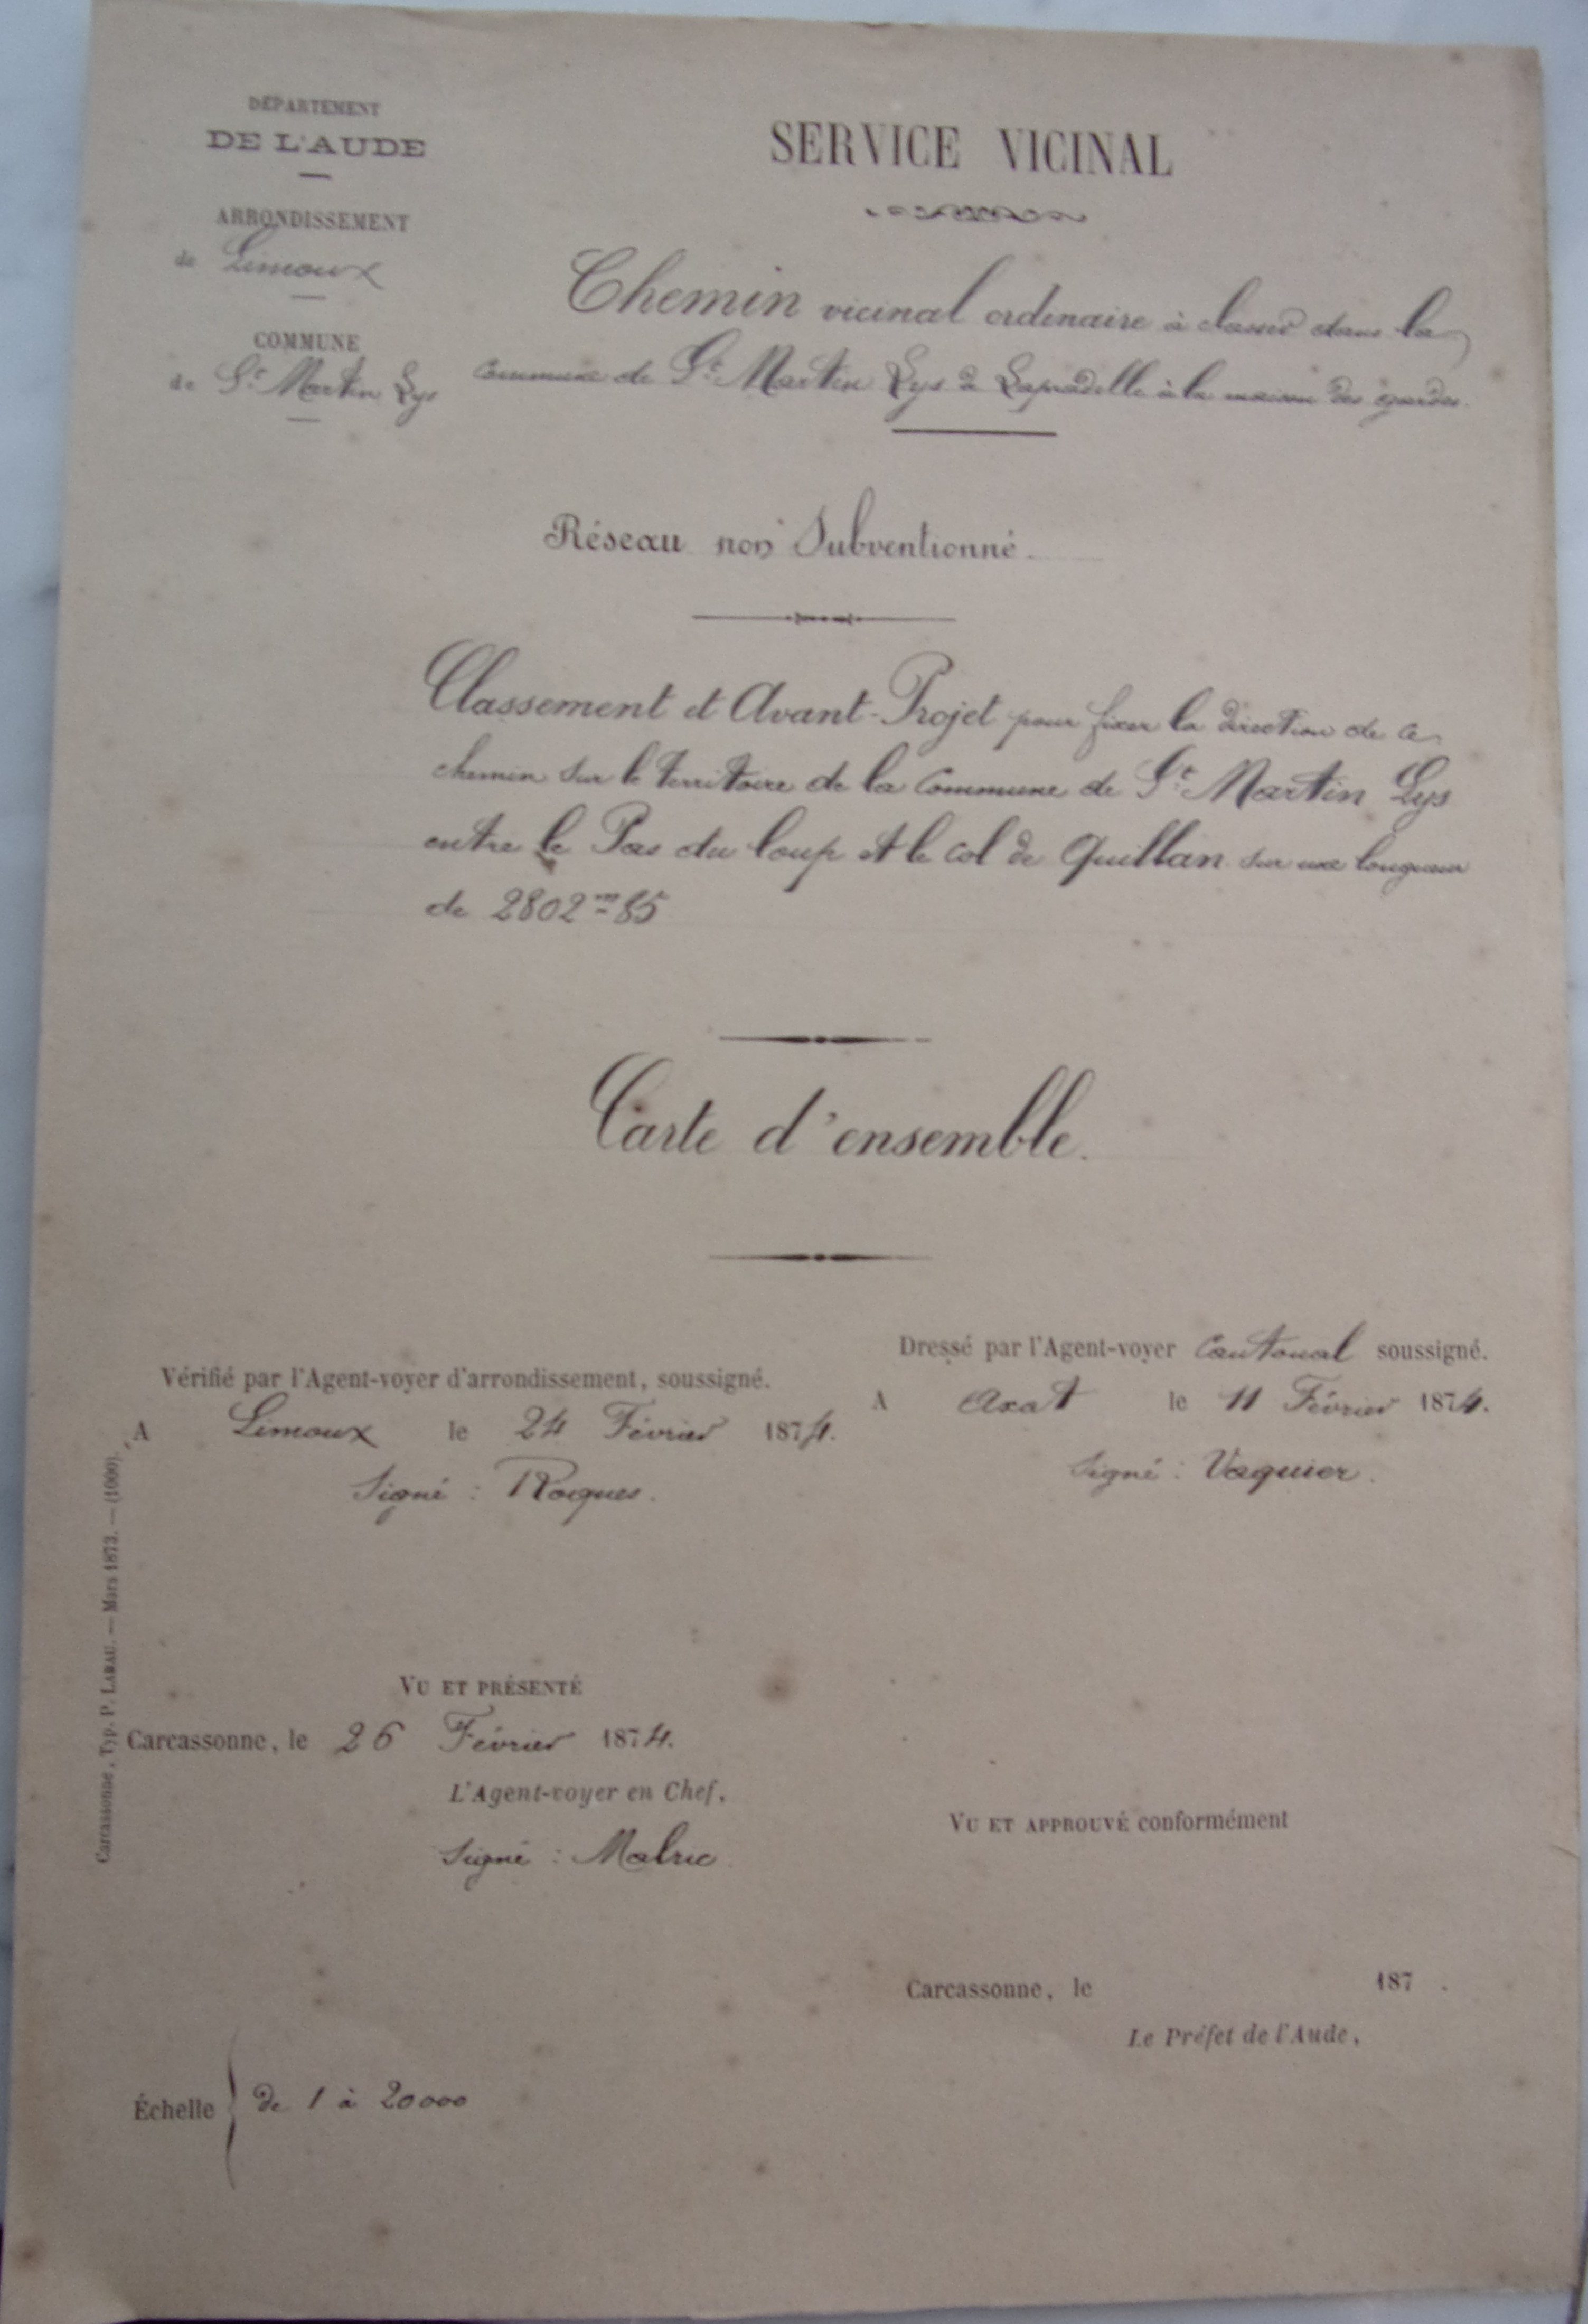 DÉPARTEMENT
DE L'AUDE
ARRONDISSEMENT
de Limoux
COMMUNE
de St Martin Lys
SERVICE VICINAL
Chemin vicinal ordinaire à classer dans la
commune de St Martin Lys de Lapradelle à la maison des gardes.
Réseau non Subventionné.
Classement et Avant-Projet pour fixer la direction de ce
chemin sur le territoire de la Commune de St Martin Lys
entre le Pas du loup et le col de Quillan sur une longueur
de 2802m85
Carte d'ensemble.
Dressé par l'Agent-voyer Cantonal soussigné.
A Axat le 11 Février 1874.
Signé : Vaquier.
Vérifié par l'Agent-voyer d'arrondissement, soussigné.
A Limoux le 24 Février 1874.
Signé : Roques.
VU ET PRÉSENTÉ
Carcassonne, le 26 Février 1874.
L'Agent-voyer en Chef,
Signé : Malric.
VU ET APPROUVÉ conformément
Carcassonne, le 187 .
Le Préfet de l'Aude,
Échelle } de 1 à 20000
Carcassonne, Typ. P. LABAU. — Mars 1873. — (1000).